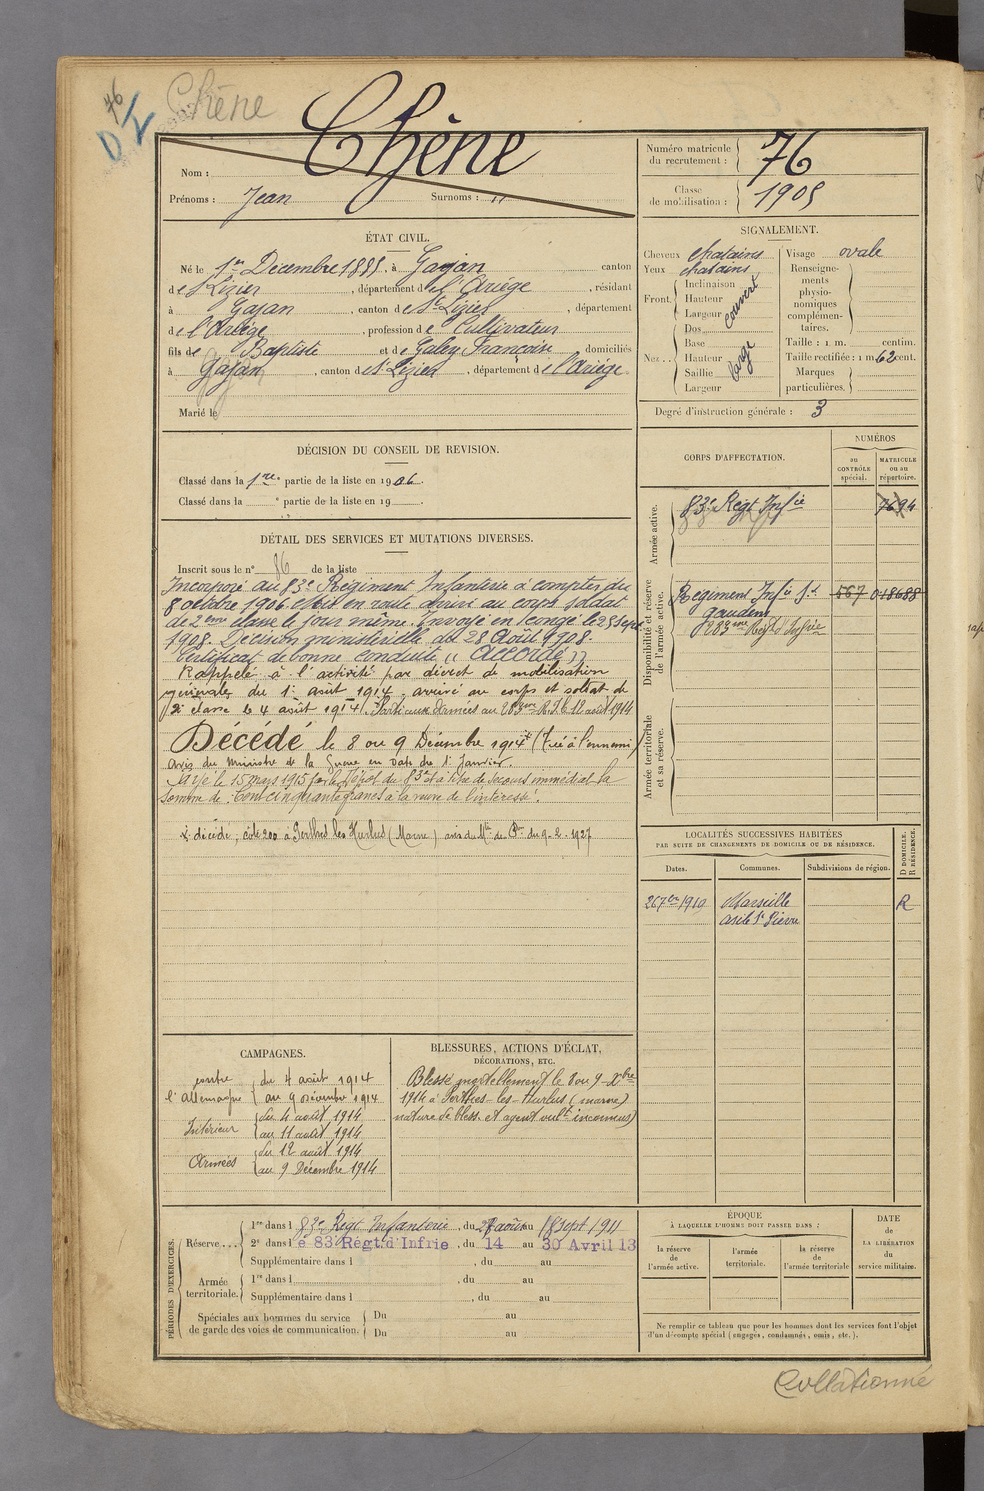 76
Chêne
Chêne
Nom :
Prénoms : Jean Surnoms : "
Numéro matricule du recrutement : 76
Classe de mobilisation : 1905
ÉTAT CIVIL.
Né le 1er Décembre 1885, à Gajan canton
de St Lizier, département de l'Ariège, résidant
à Gajan, canton de St Lizier, département
de l'Ariège, profession de Cultivateur
fils de Baptiste et de Galey Françoise, domiciliés
à Gajan, canton de St Lizier, département de l'Ariège
Marié le
SIGNALEMENT.
Cheveux chatains
Yeux chatains
Front. Inclinaison Hauteur Largeur couvert
Nez.. Dos Base Hauteur Saillie Largeur large
Visage ovale
Renseignements physionomiques complémentaires.
Taille : 1 m. centim.
Taille rectifiée : 1 m. 62 cent.
Marques particulières.
Degré d'instruction générale : 3
DÉCISION DU CONSEIL DE REVISION.
Classé dans la 1re partie de la liste en 1906.
Classé dans la e partie de la liste en 19
DÉTAIL DES SERVICES ET MUTATIONS DIVERSES.
Inscrit sous le n° 86 de la liste
Incorporé au 83e Régiment Infanterie à compter du
8 octobre 1906 et mis en route arrivé au corps soldat
de 2ème classe le jour même. Envoyé en congé le 25 Sept
1908. Décision ministérielle du 28 Août 1908.
Certificat de bonne conduite "Accordé"
Rappelé à l'activité par décret de mobilisation
générale du 1er août 1914, arrivé au corps et soldat de
2e classe le 4 août 1914. Parti aux Armées au 283ème R.I. le 12 août 1914
Décédé le 8 ou 9 Décembre 1914 (Tué à l'ennemi)
avis du Ministre de la Guerre en date du 1er Janvier.
Payé le 15 mars 1915 par le Dépôt du 83e à titre de secours immédiat la
somme de Cent cinquante francs à la mère de l'intéressé.
décédé, côte 200 à Perthes les Hurlus (Marne) avis du du 9-2-1927
CORPS D'AFFECTATION.
NUMÉROS
au CONTRÔLE spécial.
MATRICULE ou au répertoire.
Armée active.
83e Régt Infie 7694
Disponibilité et réserve de l'armée active.
Régiment Infie St 567 018688
gaudens
283eme Regt d'Infrie
Armée territoriale et sa réserve.
LOCALITÉS SUCCESSIVES HABITÉES
PAR SUITE DE CHANGEMENTS DE DOMICILE OU DE RÉSIDENCE.
D DOMICILE. R RÉSIDENCE.
Dates. Communes. Subdivisions de région.
26 7bre 1910 Marseille R
asile St Pierre
CAMPAGNES.
contre l'Allemagne du 4 août 1914
au 9 décembre 1914
Intérieur du 4 août 1914
au 11 août 1914
Armées du 12 août 1914
au 9 Décembre 1914
BLESSURES, ACTIONS D'ÉCLAT,
DÉCORATIONS, ETC.
Blessé mortellement le 8 ou 9 Xbre
1914 à Perthes-les-Hurlus (marne)
nature de bless. et agent vult inconnus)
PÉRIODES D'EXERCICES.
Réserve... 1re dans le 83e Régt Infanterie, du 27 août au 18 sept 1911
2e dans le 83 Régt. d'Infrie, du 14 au 30 Avril 13
Supplémentaire dans l , du au
Armée territoriale. 1re dans l , du au
Supplémentaire dans l , du au
Spéciales aux hommes du service de garde des voies de communication. Du au
Du au
ÉPOQUE
À LAQUELLE L'HOMME DOIT PASSER DANS :
la réserve de l'armée active.
l'armée territoriale.
la réserve de l'armée territoriale
DATE de LA LIBÉRATION du service militaire.
Ne remplir ce tableau que pour les hommes dont les services font l'objet
d'un décompte spécial (engagés, condamnés, omis, etc.).
Collationné